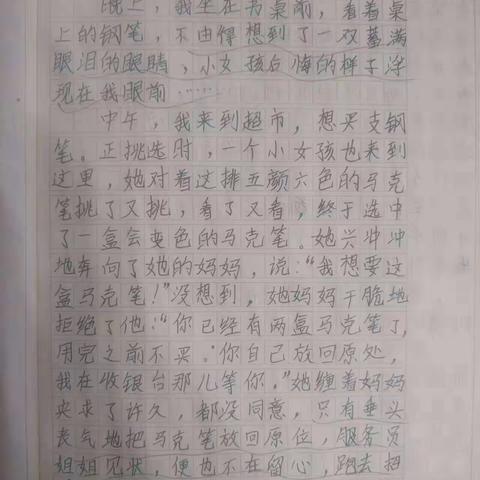 晚上，我坐在书桌前，看着桌
上的钢笔，不由得想到了一双蓄满
眼泪的眼睛，小女孩后悔的样子浮
现在我眼前……
中午，我来到超市，想买支钢
笔。正挑选时，一个小女孩也来到
这里，她对着这排五颜六色的马克
笔挑了又挑，看了又看，终于选中
了一盒会变色的马克笔。她兴冲冲
地奔向了她的妈妈，说：“我想要这
盒马克笔！”没想到，她妈妈干脆地
拒绝了他：“你已经有两盒马克笔了，
用完之前不买。你自己放回原处，
我在收银台那儿等你。”她缠着妈妈
央求了许久，都没同意，只有垂头
丧气地把马克笔放回原位，服务员
姐姐见状，便也不在留心，跑去招